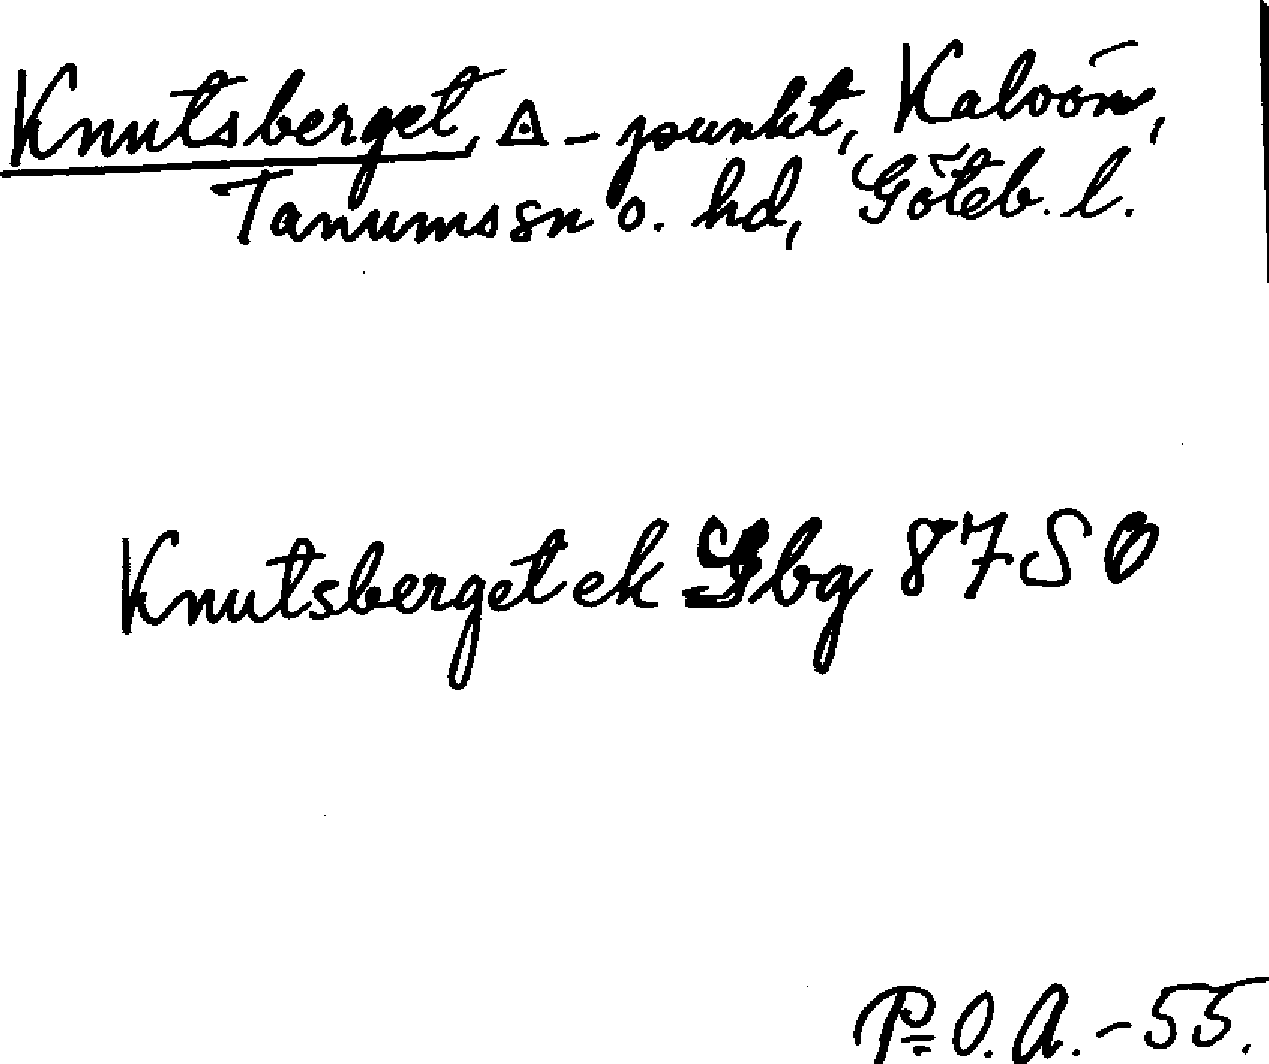 Knutsberget, △-punkt, Kaloön,
Tanums sn o. hd, Göteb. l.
Knutsberget ek Gbg 87 SO
P. O. A. - 55.